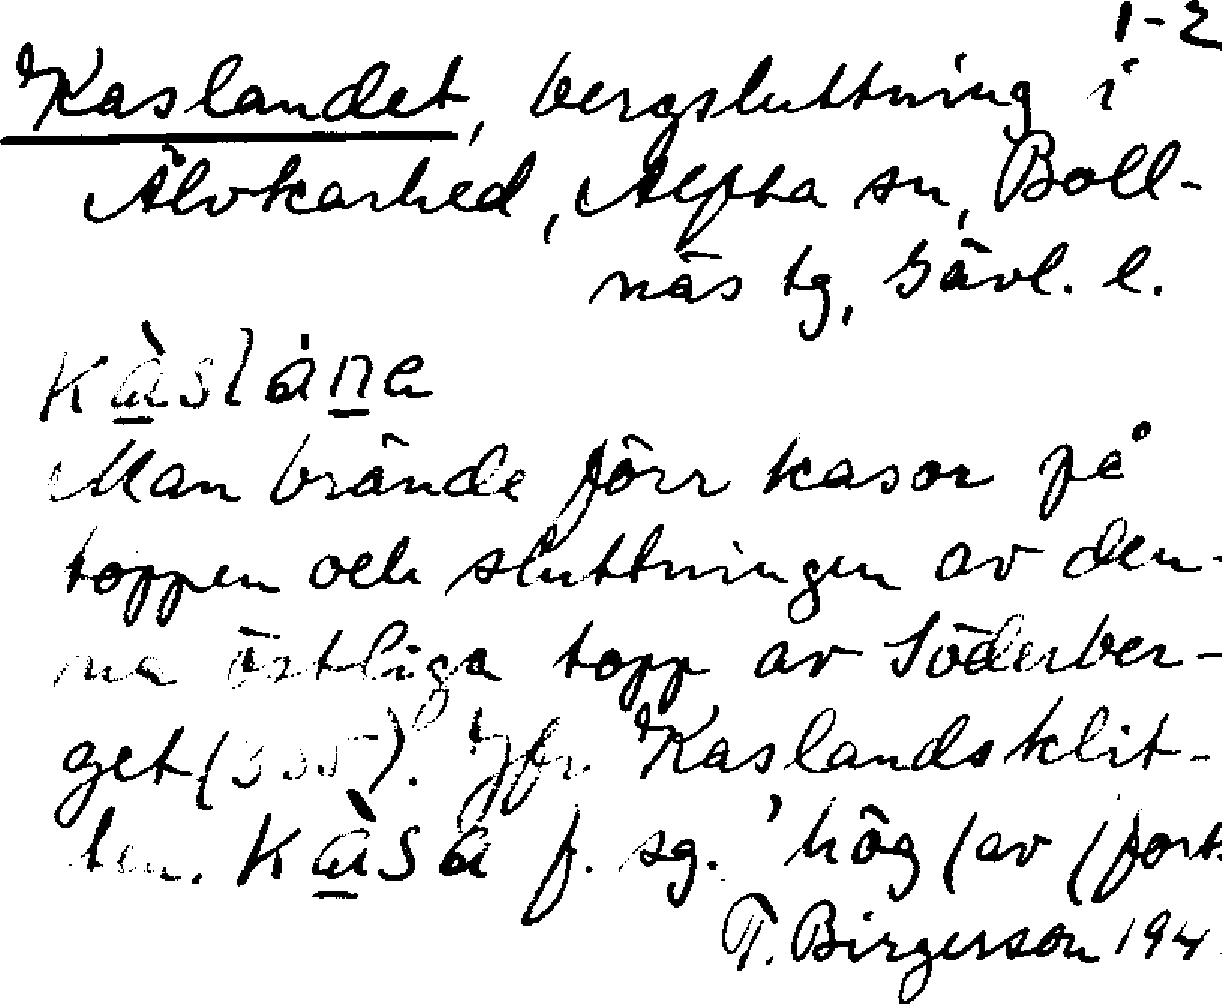 1-2
Kaslandet, bergsluttning i
Älvkarhed, Alfta sn, Boll-
näs tg, Gävl. l.
kàslána
Man brände förr kasor på
toppen och sluttningen av den-
na östliga topp av Söderber-
get (355). Jfr. Kaslandsklit-
ten. kàsa f. sg. 'hög (av (forts
T. Birgerson 194